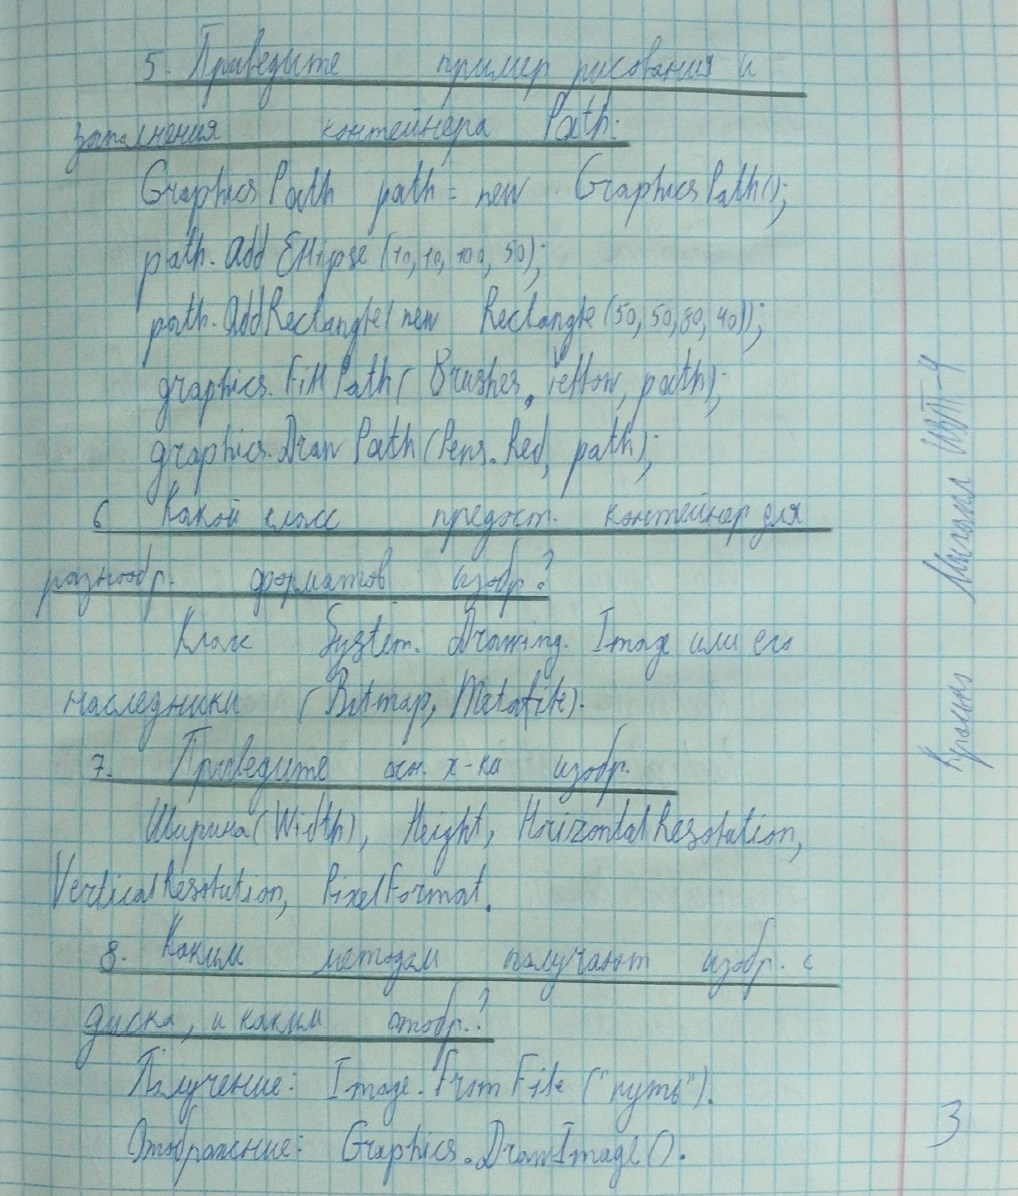 5. Приведите пример рисования и
заполнения контейнера Path:
GraphicsPath path = new GraphicsPath();
path.AddEllipse(10, 10, 100, 50);
path.AddRectangle(new Rectangle(50, 50, 80, 40));
graphics.FillPath(Brushes.Yellow, path);
graphics.DrawPath(Pens.Red, path);
6 Какой класс предост. контейнер для
разнообр. форматов изобр.?
Класс System.Drawing.Image или его
наследники (Bitmap, Metafile).
7. Приведите осн. х-ка изобр.
Ширина(Width), Height, HorizontalResolution,
VerticalResolution, PixelFormat.
8. Каким методом получают изобр. с
диска, и каким отобр.?
Получение: Image.FromFile ("путь").
Отображение: Graphics.DrawImage().
3